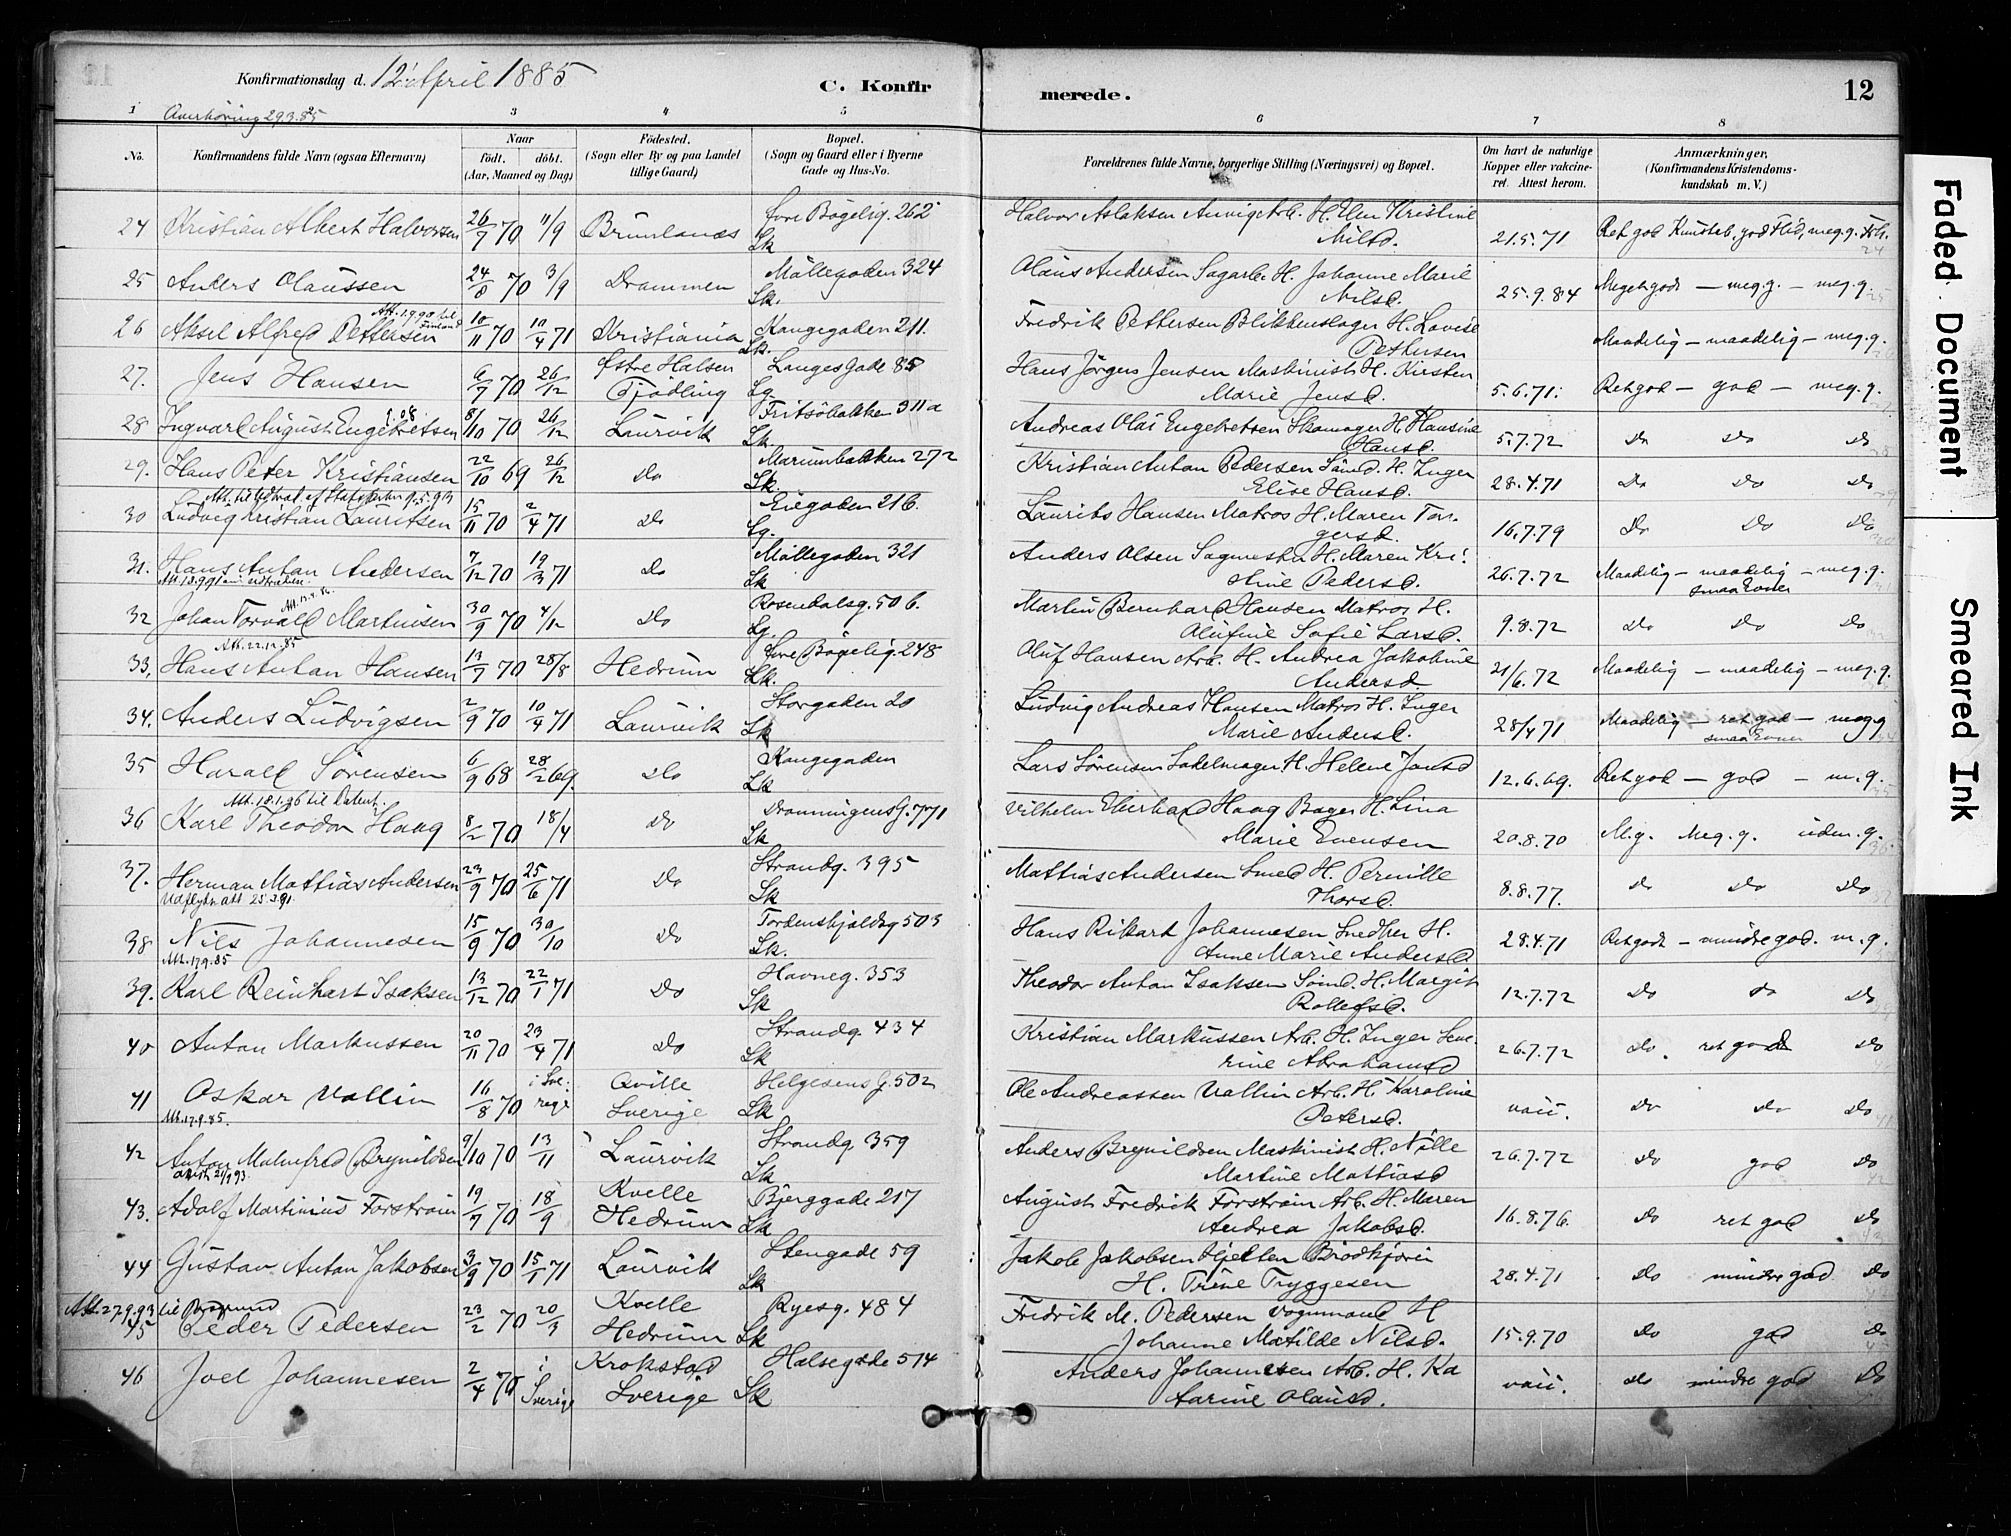 Konfirmationsdag d. 12' April 1885
C. Konfir
merede.
12
Overhøring 29.3.85
1 3 4 5 6 7 8
No.
Konfirmandens fulde Navn (ogsaa Efternavn)
Naar
født. døbt.
(Aar, Maaned og Dag)
Fødested.
(Sogn eller By og paa Landet
tillige Gaard)
Bopæl.
(Sogn og Gaard eller i Byerne
Gade og Hus-No.
Forældrenes fulde Navne, borgerlige Stilling (Næringsvei) og Bopæl.
Om havt de naturlige
Kopper eller vakcine-
ret. Attest herom.
Anmærkninger,
(Konfirmandens Kristendoms-
kundskab m. V.)
24 Kristian Albert Halvorsen 26/7 70 11/9 Brunlanes Øvre Bøgelig. 262 Lk Halvor Aslaksen Arb. H. Elen Kristine
Nilsd. 21.5.71 Ret god Kundskab, god Flid, meg. g. Forh.
25 Anders Olaussen 24/8 70 3/9 Drammen Møllegaden 324 Lk. Olaus Andersen Sagarb. H. Johanne Marie
Nilsd. 25.9.84 Meget god — meg. g. — meg. g.
Att. 1.9.90 til
26 Aksel Alfred Pettersen 10/11 70 10/4 71 Kristiania Kongegaden 211. Lk. Fredrik Pettersen Blikkenslager H. Lovise
Pettersen Maadelig — maadelig — meg. g.
27. Jens Hansen 6/7 70 26/12 Østre Halsen
Tjødling Langes Gade 85 Lg Hans Jørgen Jensen Maskinist H. Kirsten
Marie Jensd. 5.6.71. Ret god — god — meg. g.
28 Ingvard August Engebretsen 8/10 70 26/12 Laurvik Fritsøbakken 311a Lk. Andreas Olai Engebretsen Skomager H. Hansine
Hansd. 5.7.72 Do Do Do
29. Hans Peter Kristiansen 22/10 69 26/12 Do Marumbakken 272 Lk. Kristian Anton Pedersen Sømd. H. Inger
Elise Hansd. 28.4.71 Do Do Do
30 Ludvig Kristian Lauritsen 15/11 70 2/4 71 Do Eiegaden 216. Lg. Laurits Hansen Matros H. Maren Tor-
gersd. 16.7.79 Do Do Do
31. Hans Anton Andersen 7/12 70 19/3 71 Do Møllegaden 321 Lk Anders Olsen Sagmester H. Maren Kri-
stine Pedersd. 26.7.72 Maadelig — maadelig — meg. g.
smaa Evner
32 Johan Torvald Martinsen 30/9 70 4/12 Do Rosendalsg. 506. Lg. Martin Bernhard Hansen Matros H.
Olufine Sofie Larsd. 9.8.72 Do Do Do
Att. 22.12.85
33, Hans Anton Hansen 13/7 70 28/8 Hedrum Øvre Bøgelig. 248 Lk. Oluf Hansen Arb. H. Andrea Jakobine
Andersd 21/6.72 Maadelig — maadelig — meg. g.
34. Anders Ludvigsen 2/9 70 10/4 71 Laurvik Storgaden 20 Lk Ludvig Andreas Hansen Matros H. Inger
Marie Andersd. 28/4 71 Maadelig — ret god — meg. g
smaa Evner
35 Harald Sørensen 6/9 68 28/2 69. Do Kongegaden Lk Lars Sørensen Sadelmager H. Helene Jansd 12.6.69. Ret god — god — m. g.
Att. 18.1.36 til Patent.
36 Karl Theodor Haag 8/2 70 18/4 Do Dronningens G. 771 Lk Vilhelm Eberhard Haag Bager H. Lina
Marie Evensen 20.8.70 M.g. Meg. g. udm. g.
37. Herman Mattias Andersen 23/9 70 25/6 71 Do Strandg. 395 Lk Mattias Andersen Smed H. Pernille
Thorsd. 8.8.77. Do Do Do
Udflytn. att 25.3.91.
38 Nils Johannesen 15/9 70 30/10 Do Tordenskjoldsg 503 Lk. Hans Rikard Johannesen Snedker H.
Anne Marie Andersd 28.4.71 Ret god — mindre god. m. g.
Att. 17.9.85
39. Karl Reinhart Isaksen 13/12 70 22/1 71 Do Havneg. 353 Lk Theodor Anton Isaksen Sømd. H. Margit
Rollefsd. 12.7.72 Do Do Do
40 Anton Markussen 20/11 70 23/4 71 Do Strandg. 434 Lk Kristian Markussen Arb. H. Inger Seve-
rine Abrahamsd 26.7.72 Do. ret god Do
41 Oskar Vallin 16/8 70 i Sve-
rige Qville
Sverige Helgesens G. 502 Lk Ole Andreassen Vallin Arb. H. Karoline
Petersd. vacc. Do Do Do
Att. 17.9.85.
42 Anton Malmfred Brynildsen 9/10 70 13/11 Laurvik Strandg. 359 Lk Anders Brynildsen Maskinist H. Nille
Martine Mattiasd 26.7.72 Do god Do
43. Adolf Martinius Forstrøm 19/7 70 18/9 Kvelle
Hedrum Bjerggade 217 Lk August Fredrik Forstrøm Arb. H. Maren
Andrea Jakobsd. 16.8.76. Do ret god Do
44 Gustav Anton Jakobsen 3/9 70 15/1 71 Laurvik Stengade 59 Lk Jakob Jakobsen Hjelten Brødkjører
H. Trine Tryggesen 28.4.71 Do mindre god Do
Att. 27.9.93 til
45 Peder Pedersen 23/2 70 20/3 Kvelle
Hedrum Ryesg. 484 Lk Fredrik M. Pedersen Vognmand H
Johanne Matilde Nilsd. 15.9.70 Do god Do
46 Joel Johannesen 2/4 70 i
Sverige Krokstad
Sverige Halsegade 514 Lk Anders Johannesen Arb. H. Ka
tarine Olausd. vacc. Do mindre god Do
Faded Document
Smeared Ink